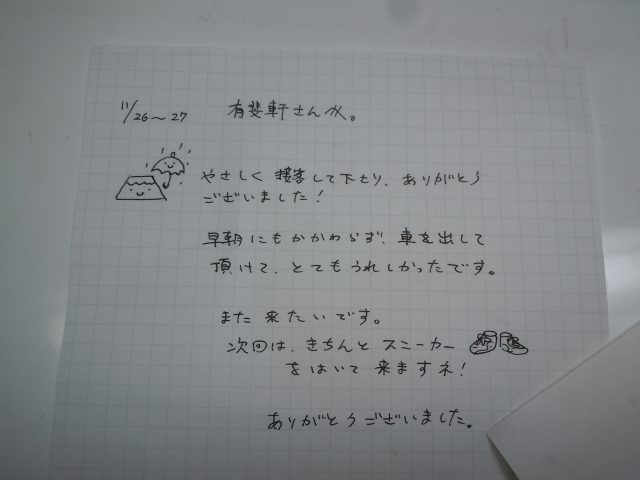 11/26〜27
有斐軒さんへ。
やさしく接客して下さり、ありがとう
ございました!
早朝にもかかわらず、車を出して
頂けて、とてもうれしかったです。
また来たいです。
次回は、きちんとスニーカー
をはいて来ますネ!
ありがとうございました。